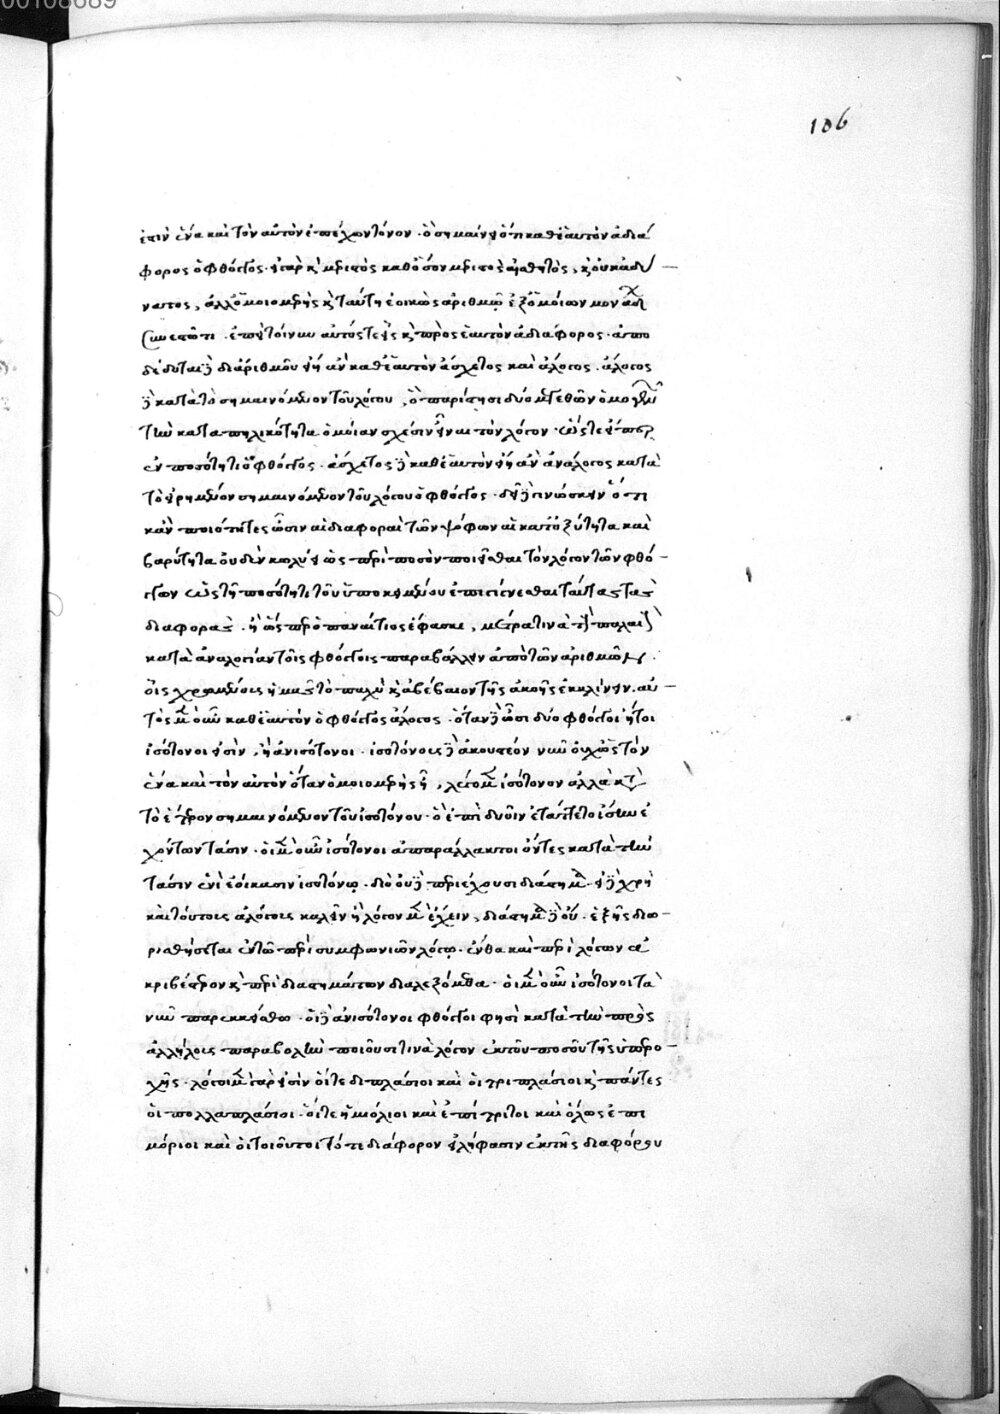 106
ἐστὶν ἕνα καὶ τὸν αὐτὸν ἐπέχων τόνον · ὃ σημαίνει ὅτι καθ' ἑαυτὸν ἀδιά
φορος ὁ φθόγγος · καθ' ὅσον αἰσθητὸς, κ οὐκ ἀδύ
νατος, ἀλλ' ὁμοιομερὴς κ ταύτῃ ἐοικὼς ἀριθμῷ ἐξ ὁμοίων μονάδων
συνεστῶτι · ἐπεὶ τοίνυν αὐτός τε εἷς κ πρὸς ἑαυτὸν ἀδιάφορος · ἀπο
δέδοται δι' ἀριθμοῦ εἴη ἂν καθ' ἑαυτὸν ἄσχετος καὶ ἄλογος · ἄλογος
δὲ κατὰ τὸ σημαινόμενον τοῦ λόγου, ὃ παρίστησι δύο μεγεθῶν ὁμογενῶν
τὴν κατὰ πηλικότητα ὁμοίαν σχέσιν εἶναι τὸν λόγον · ὥστε εἴπερ
ἐν ποσότητι ὁ φθόγγος · ἄσχετος δὲ καθ' ἑαυτὸν εἴη ἂν ἀνάλογος κατὰ
τὸ εἰρημένον σημαινόμενον τοῦ λόγου ὁ φθόγγος · δεῖ δὲ γινώσκειν ὅτι
κἂν ποιότητες ὦσιν αἱ διαφοραὶ τῶν ψόφων αἱ κατ' ὀξύτητα καὶ
βαρύτητα οὐδὲν κωλύει ὡς περὶ ποσὸν ποιεῖσθαι τὸν λόγον τῶν φθό
γγων ὡς τῇ ποσότητι τοῦ ὑποκειμένου ἐπιγίνεσθαι ταύτας τὰς
διαφοράς · ἢ ὡς περ ὁ παναίτιος ἔφασκε, πάλαι
κατὰ ἀναλογίαν τοῖς φθόγγοις παραβάλλειν ἀπὸ τῶν ἀριθμῶν
οἷς χρωμένοις ἡμᾶς τὸ πολὺ κ ἀβέβαιον τῆς ἀκοῆς ἐκκλίνειν · αὐ
τὸς μὲν οὖν καθ' ἑαυτὸν ὁ φθόγγος ἄλογος · ὅταν δὲ ὦσι δύο φθόγγοι ἤτοι
ἰσότονοι εἰσὶν, ἢ ἀνισότονοι · ἰσοτόνους δὲ ἀκουστέον νῦν οὐχ ὡς τὸν
ἕνα καὶ τὸν αὐτὸν ὅταν ὁμοιομερὴς ᾖ, λέγομεν ἰσότονον ἀλλὰ κατὰ
τὸ ἕτερον σημαινόμενον τοῦ ἰσοτόνου · ὃ ἐπὶ δυοῖν ἐτάττετο ἴσην ἐ
χόντων τάσιν · οἱ μὲν οὖν ἰσότονοι ἀπαράλλακτοι ὄντες κατὰ τὴν
τάσιν ἑνὶ ἐοίκασιν ἰσοτόνῳ · διὸ οὐδὲ περιέχουσι διάστημα · εἰ δὲ χρὴ
καὶ τούτοις ἀλόγοις καλεῖν ἢ λόγον μὲν ἔχειν, διάστημα δὲ οὔ · ἑξῆς διο
ρισθήσεται ἐν τῷ περὶ συμφωνιῶν λόγῳ · ἔνθα καὶ περὶ λόγων ἀ
κριβέστερον κ περὶ διαστημάτων διαλεξόμεθα · οἱ μὲν οὖν ἰσότονοι τὰ
νῦν παρεκκείσθω · οἱ δὲ ἀνισότονοι φθόγγοι φησὶ κατὰ τὴν πρὸς
ἀλλήλους παραβολὴν ποιοῦσι τινὰ λόγον ἐκ τοῦ ποσοῦ τῆς ὑπερο
χῆς · λόγοι μὲν γὰρ εἰσὶν οἵ τε διπλάσιοι καὶ οἱ τριπλάσιοι κ πάντες
οἱ πολλαπλάσιοι · οἵ τε ἡμιόλιοι καὶ ἐπίτριτοι καὶ ὅλως ἐπι
μόριοι καὶ οἱ τοιοῦτοι τό τι διάφορον εἰλήφασιν ἐκ τῆς διαφόρου